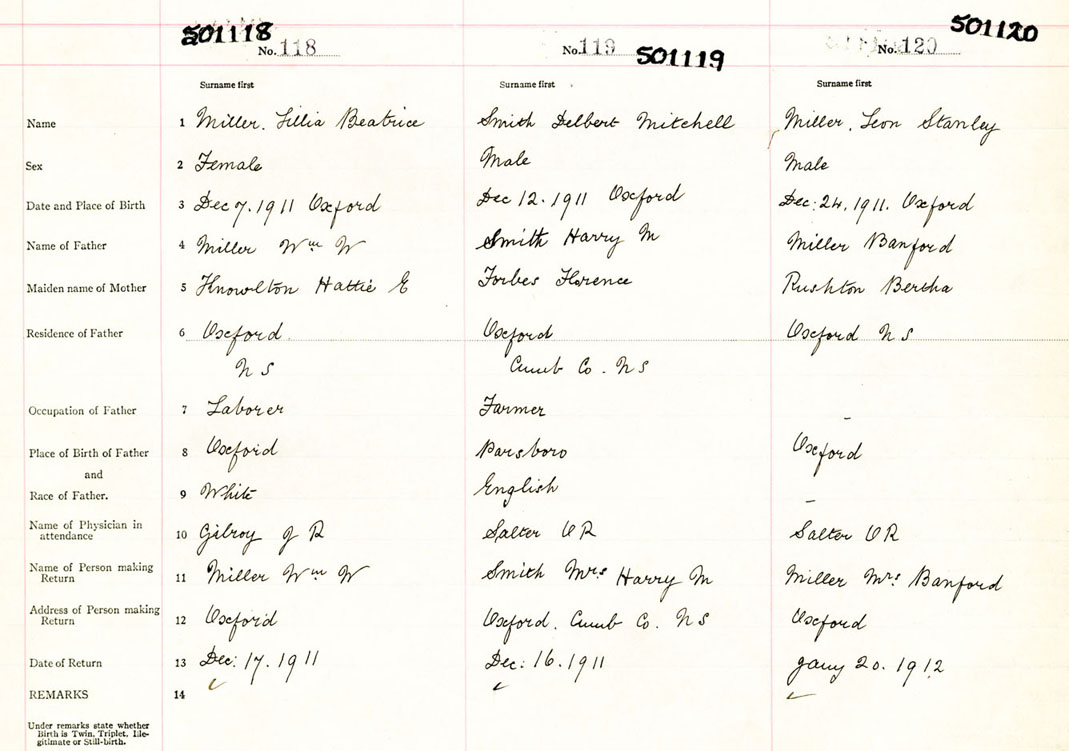 501118 No. 118 No. 119 501119 No. 120 501120
Surname first Surname first Surname first
Name 1 Miller, Lillia Beatrice Smith Delbert Mitchell Miller, Leon Stanley
Sex 2 Female Male Male
Date and Place of Birth 3 Dec 7. 1911 Oxford Dec 12. 1911 Oxford Dec: 24, 1911. Oxford
Name of Father 4 Miller Wm W Smith Harry M Miller Banford
Maiden name of Mother 5 Knowlton Hattie E Forbes Florence Rushton Bertha
Residence of Father 6 Oxford Oxford Oxford N S
N S Cumb Co. N S
Occupation of Father 7 Laborer Farmer -
Place of Birth of Father 8 Oxford Parsboro Oxford
and
Race of Father. 9 White English -
Name of Physician in
attendance 10 Gilroy J R Salter V R Salter V R
Name of Person making
Return 11 Miller Wm W Smith Mrs Harry M Miller Mrs Banford
Address of Person making
Return 12 Oxford Oxford, Cumb Co. N S Oxford
Date of Return 13 Dec: 17. 1911 Dec: 16. 1911 Jany 20. 1912
REMARKS 14
Under remarks state whether
Birth is Twin, Triplet, Ille-
gitimate or Still-birth.